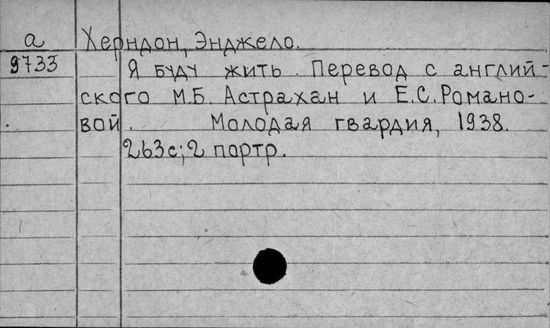 а Херндон, Энджело.
9733 Я буду жить. Перевод с англий-
ского М.Б. Астрахан и Е.С. Романо-
вой. Молодая гвардия, 1938.
263с; 2 портр.